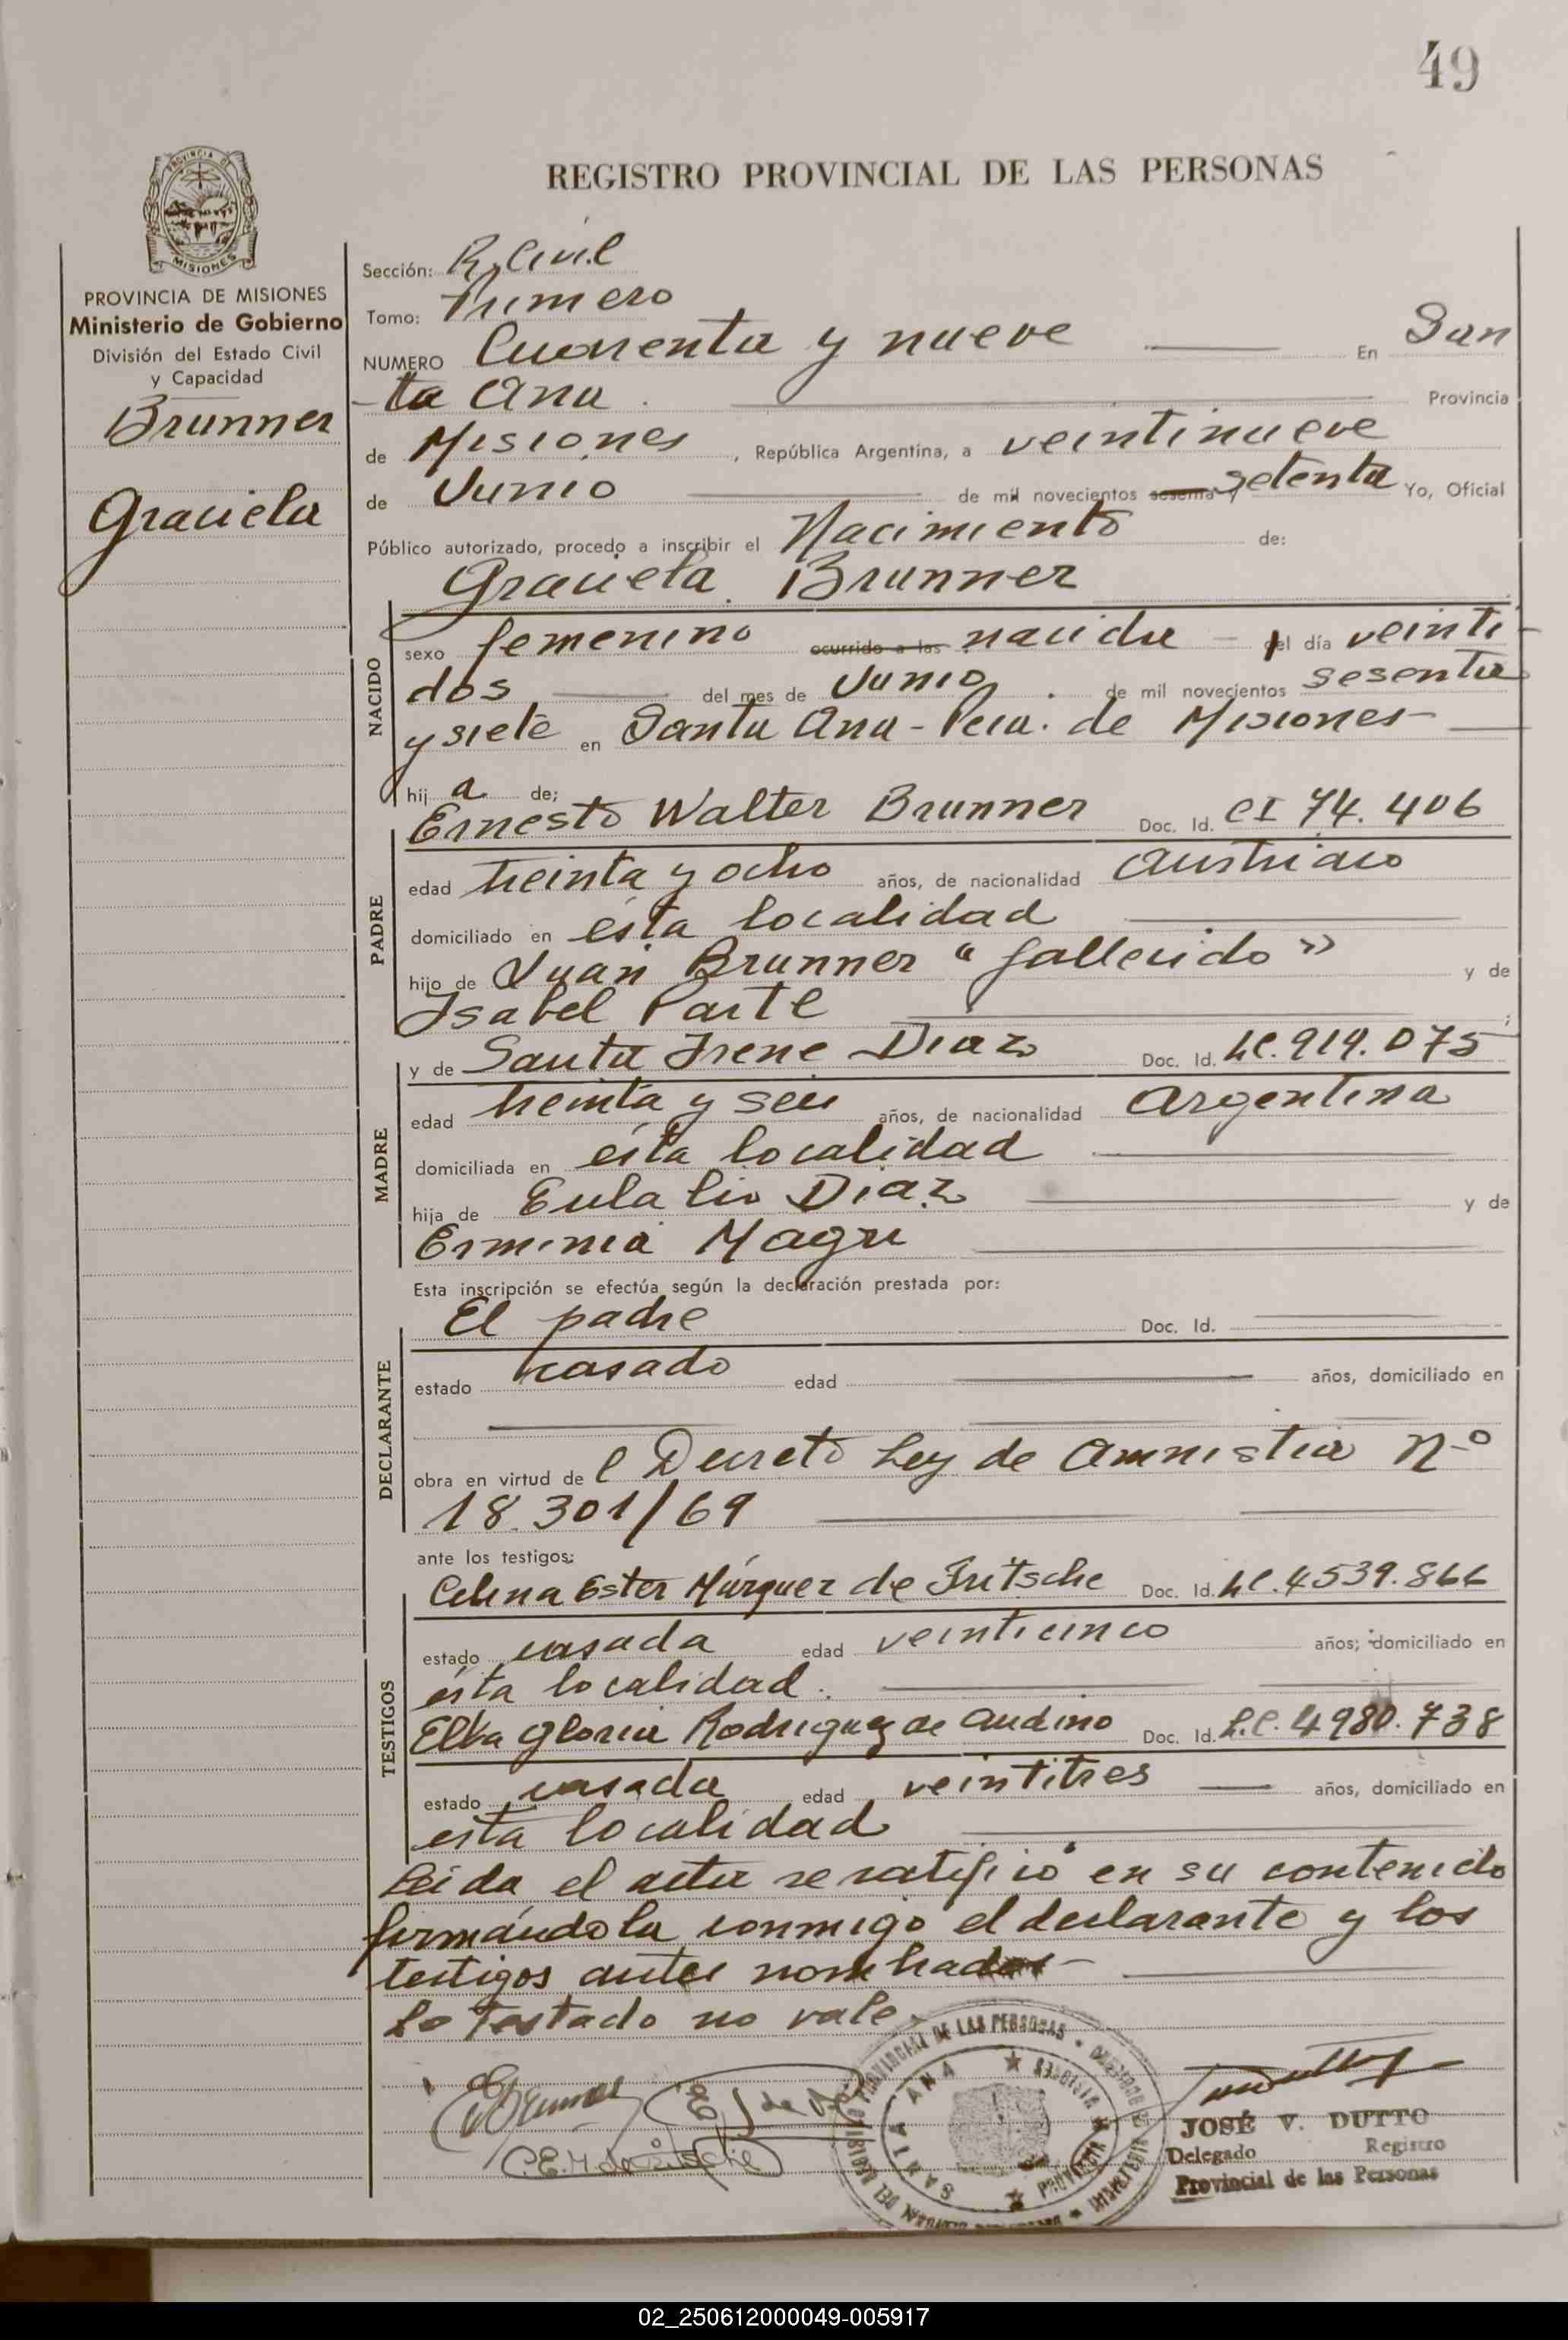 49
REGISTRO PROVINCIAL DE LAS PERSONAS
PROVINCIA DE MISIONES
Ministerio de Gobierno
División del Estado Civil
y Capacidad
Brunner
Graciela
Sección: R. Civil
Tomo: Primero
NUMERO Cuarenta y nueve En San
-ta Ana. Provincia
de Misiones, República Argentina, a veintinueve
de Junio de mil novecientos sesenta y setenta Yo, Oficial
Público autorizado, procedo a inscribir el Nacimiento de:
Graciela Brunner
NACIDO
sexo femenino ocurrido a las nacida - el día veinti-
dos del mes de Junio de mil novecientos sesenta
y siete en Santa Ana - Pcia. de Misiones -
hij a de:
Ernesto Walter Brunner Doc. Id. CI 74.406
PADRE
edad treinta y ocho años, de nacionalidad Austriaco
domiciliado en ésta localidad
hijo de Juan Brunner "fallecido" y de
Isabel Parte
y de Santa Irene Diaz Doc. Id. LC. 919.075
MADRE
edad treinta y seis años, de nacionalidad Argentina
domiciliada en ésta localidad
hija de Eulalio Diaz y de
Erminia Magri
Esta inscripción se efectúa según la declaración prestada por:
El padre Doc. Id.
DECLARANTE
estado casado edad años, domiciliado en
obra en virtud de l Decreto Ley de Amnistia Nº
18.301/69
ante los testigos:
Celina Ester Márquez de Fritsche Doc. Id. LC. 4539.866
TESTIGOS
estado casada edad veinticinco años; domiciliado en
ésta localidad.
Elba Gloria Rodriguez de Audino Doc. Id. L.C. 4980.738
estado casada edad veintitres años, domiciliado en
esta localidad
Leida el acta se ratificó en su contenido
firmándola conmigo el declarante y los
testigos antes nombrados -
Lo testado no vale.
PROVINCIAL DE LAS PERSONAS
SANTA ANA
PROVINCIA MISIONES
JOSÉ V. DUTTO
Delegado Registro
Provincial de las Personas
02_250612000049-005917